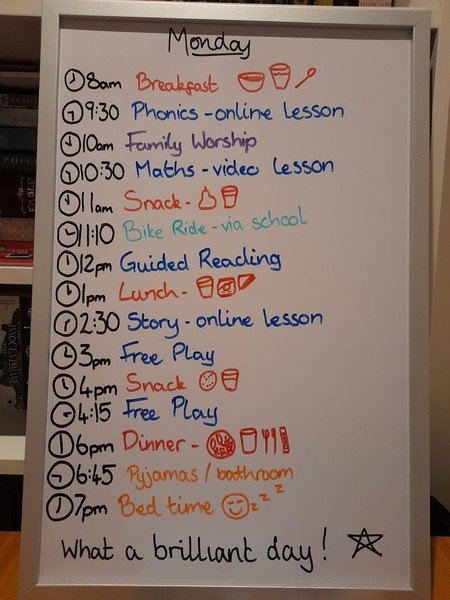 Monday
8am Breakfast
9:30 Phonics - online lesson
10am Family Worship
10:30 Maths - video lesson
11am Snack -
11:10 Bike Ride - via school
12pm Guided Reading
1pm Lunch -
2:30 Story - online lesson
3pm Free Play
4pm Snack
4:15 Free Play
6pm Dinner -
6:45 Pyjamas / bathroom
7pm Bed time z z z
What a brilliant day!